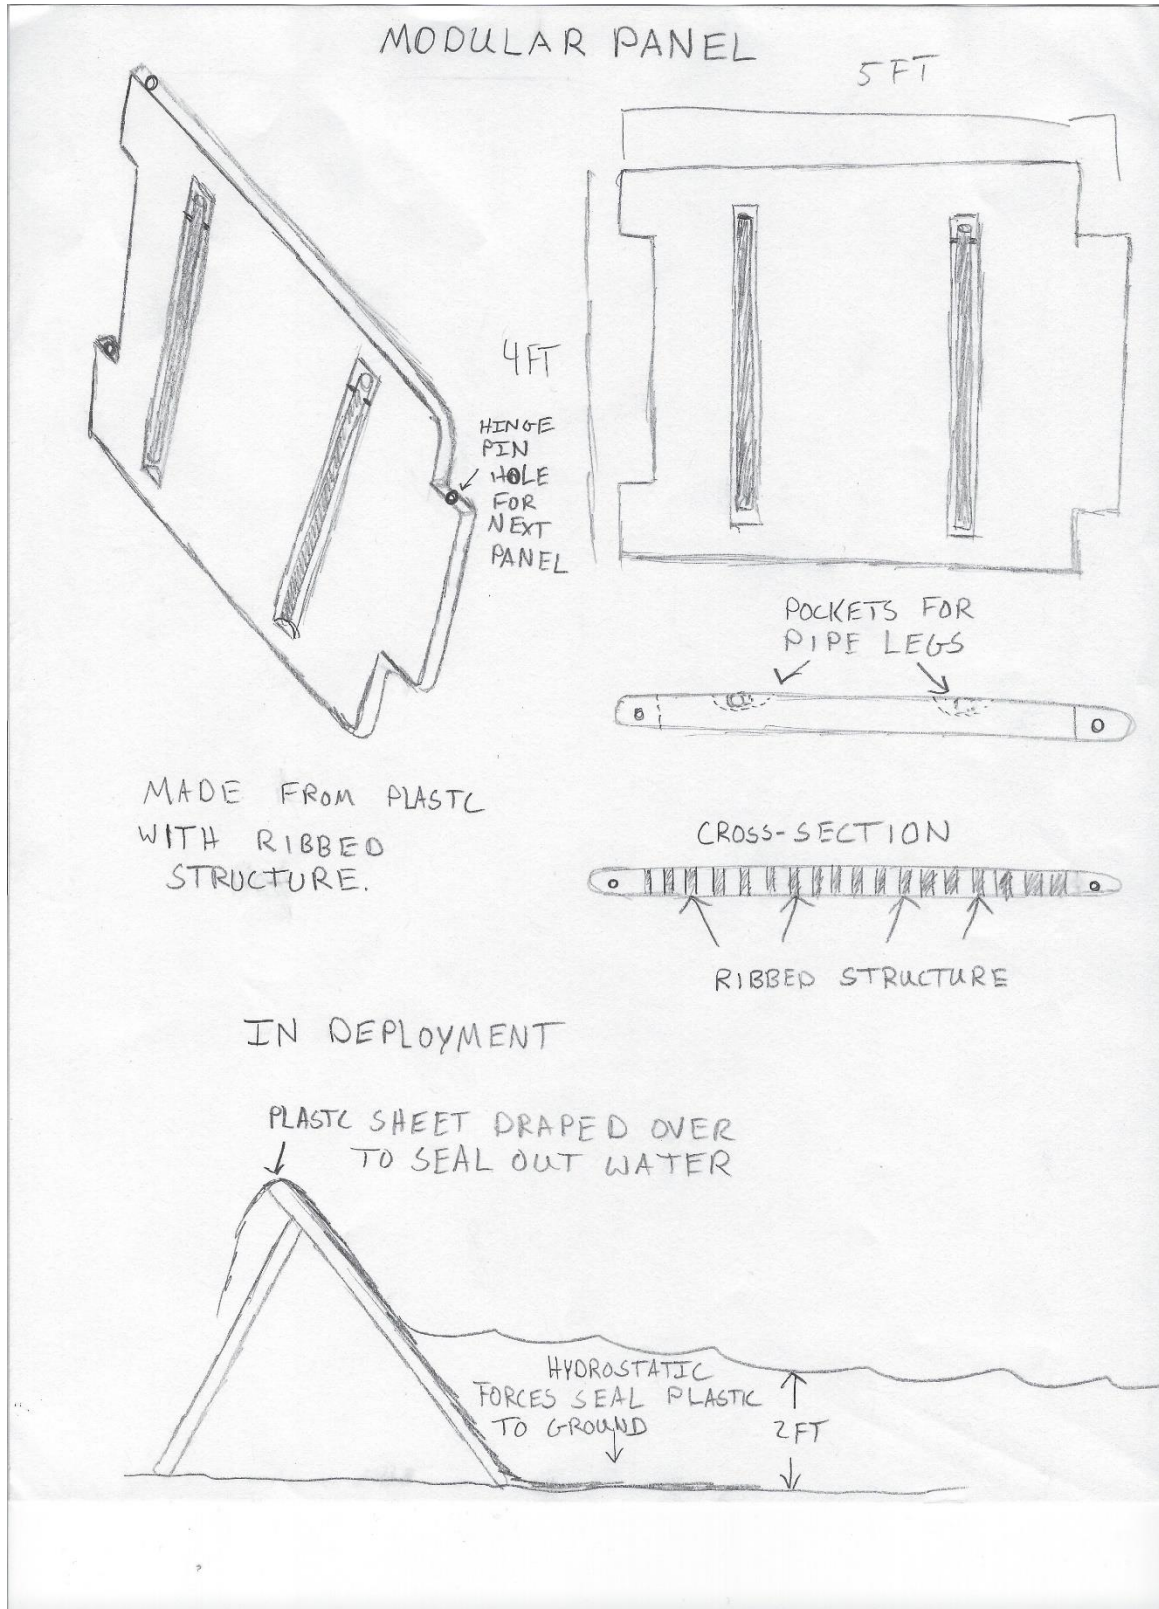 MODULAR PANEL
5FT
4FT
HINGE
PIN
HOLE
FOR
NEXT
PANEL
POCKETS FOR
PIPE LEGS
MADE FROM PLASTC
WITH RIBBED
STRUCTURE.
CROSS-SECTION
RIBBED STRUCTURE
IN DEPLOYMENT
PLASTC SHEET DRAPED OVER
TO SEAL OUT WATER
HYDROSTATIC
FORCES SEAL PLASTIC
TO GROUND
2FT